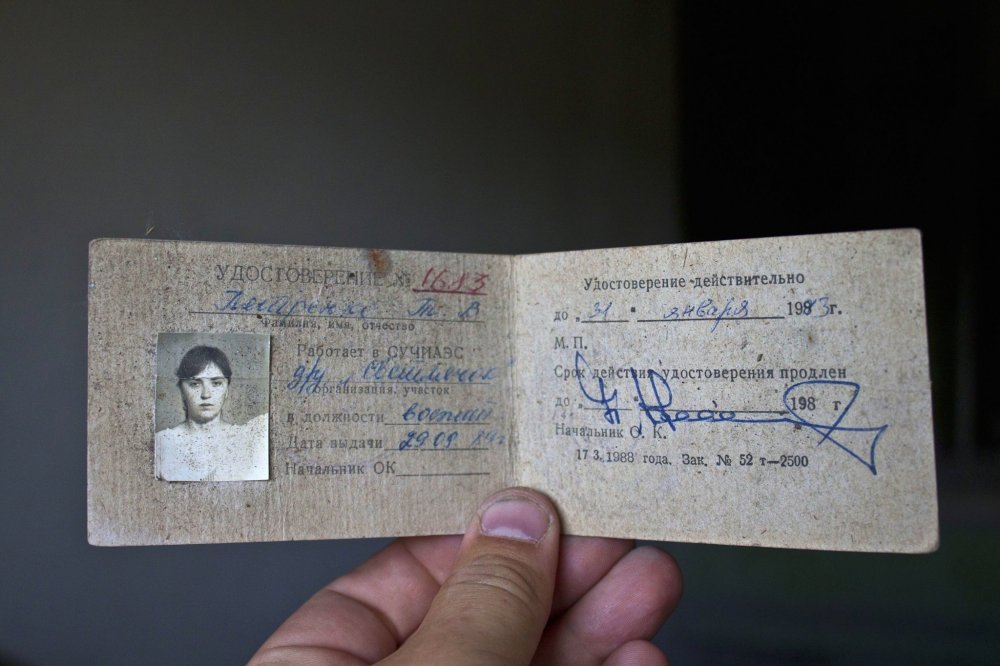 УДОСТОВЕРЕНИЕ № 1683
Т. В.
Фамилия, имя, отчество
Работает в СУЧИАЭС
д/у
организация, участок
в должности
Дата выдачи 29.09
Начальник ОК
Удостоверение действительно
до „31" января 1993г.
М. П.
Срок действия удостоверения продлен
до „ 198 г
Начальник О. К.
17 3. 1988 года. Зак. № 52 т—2500